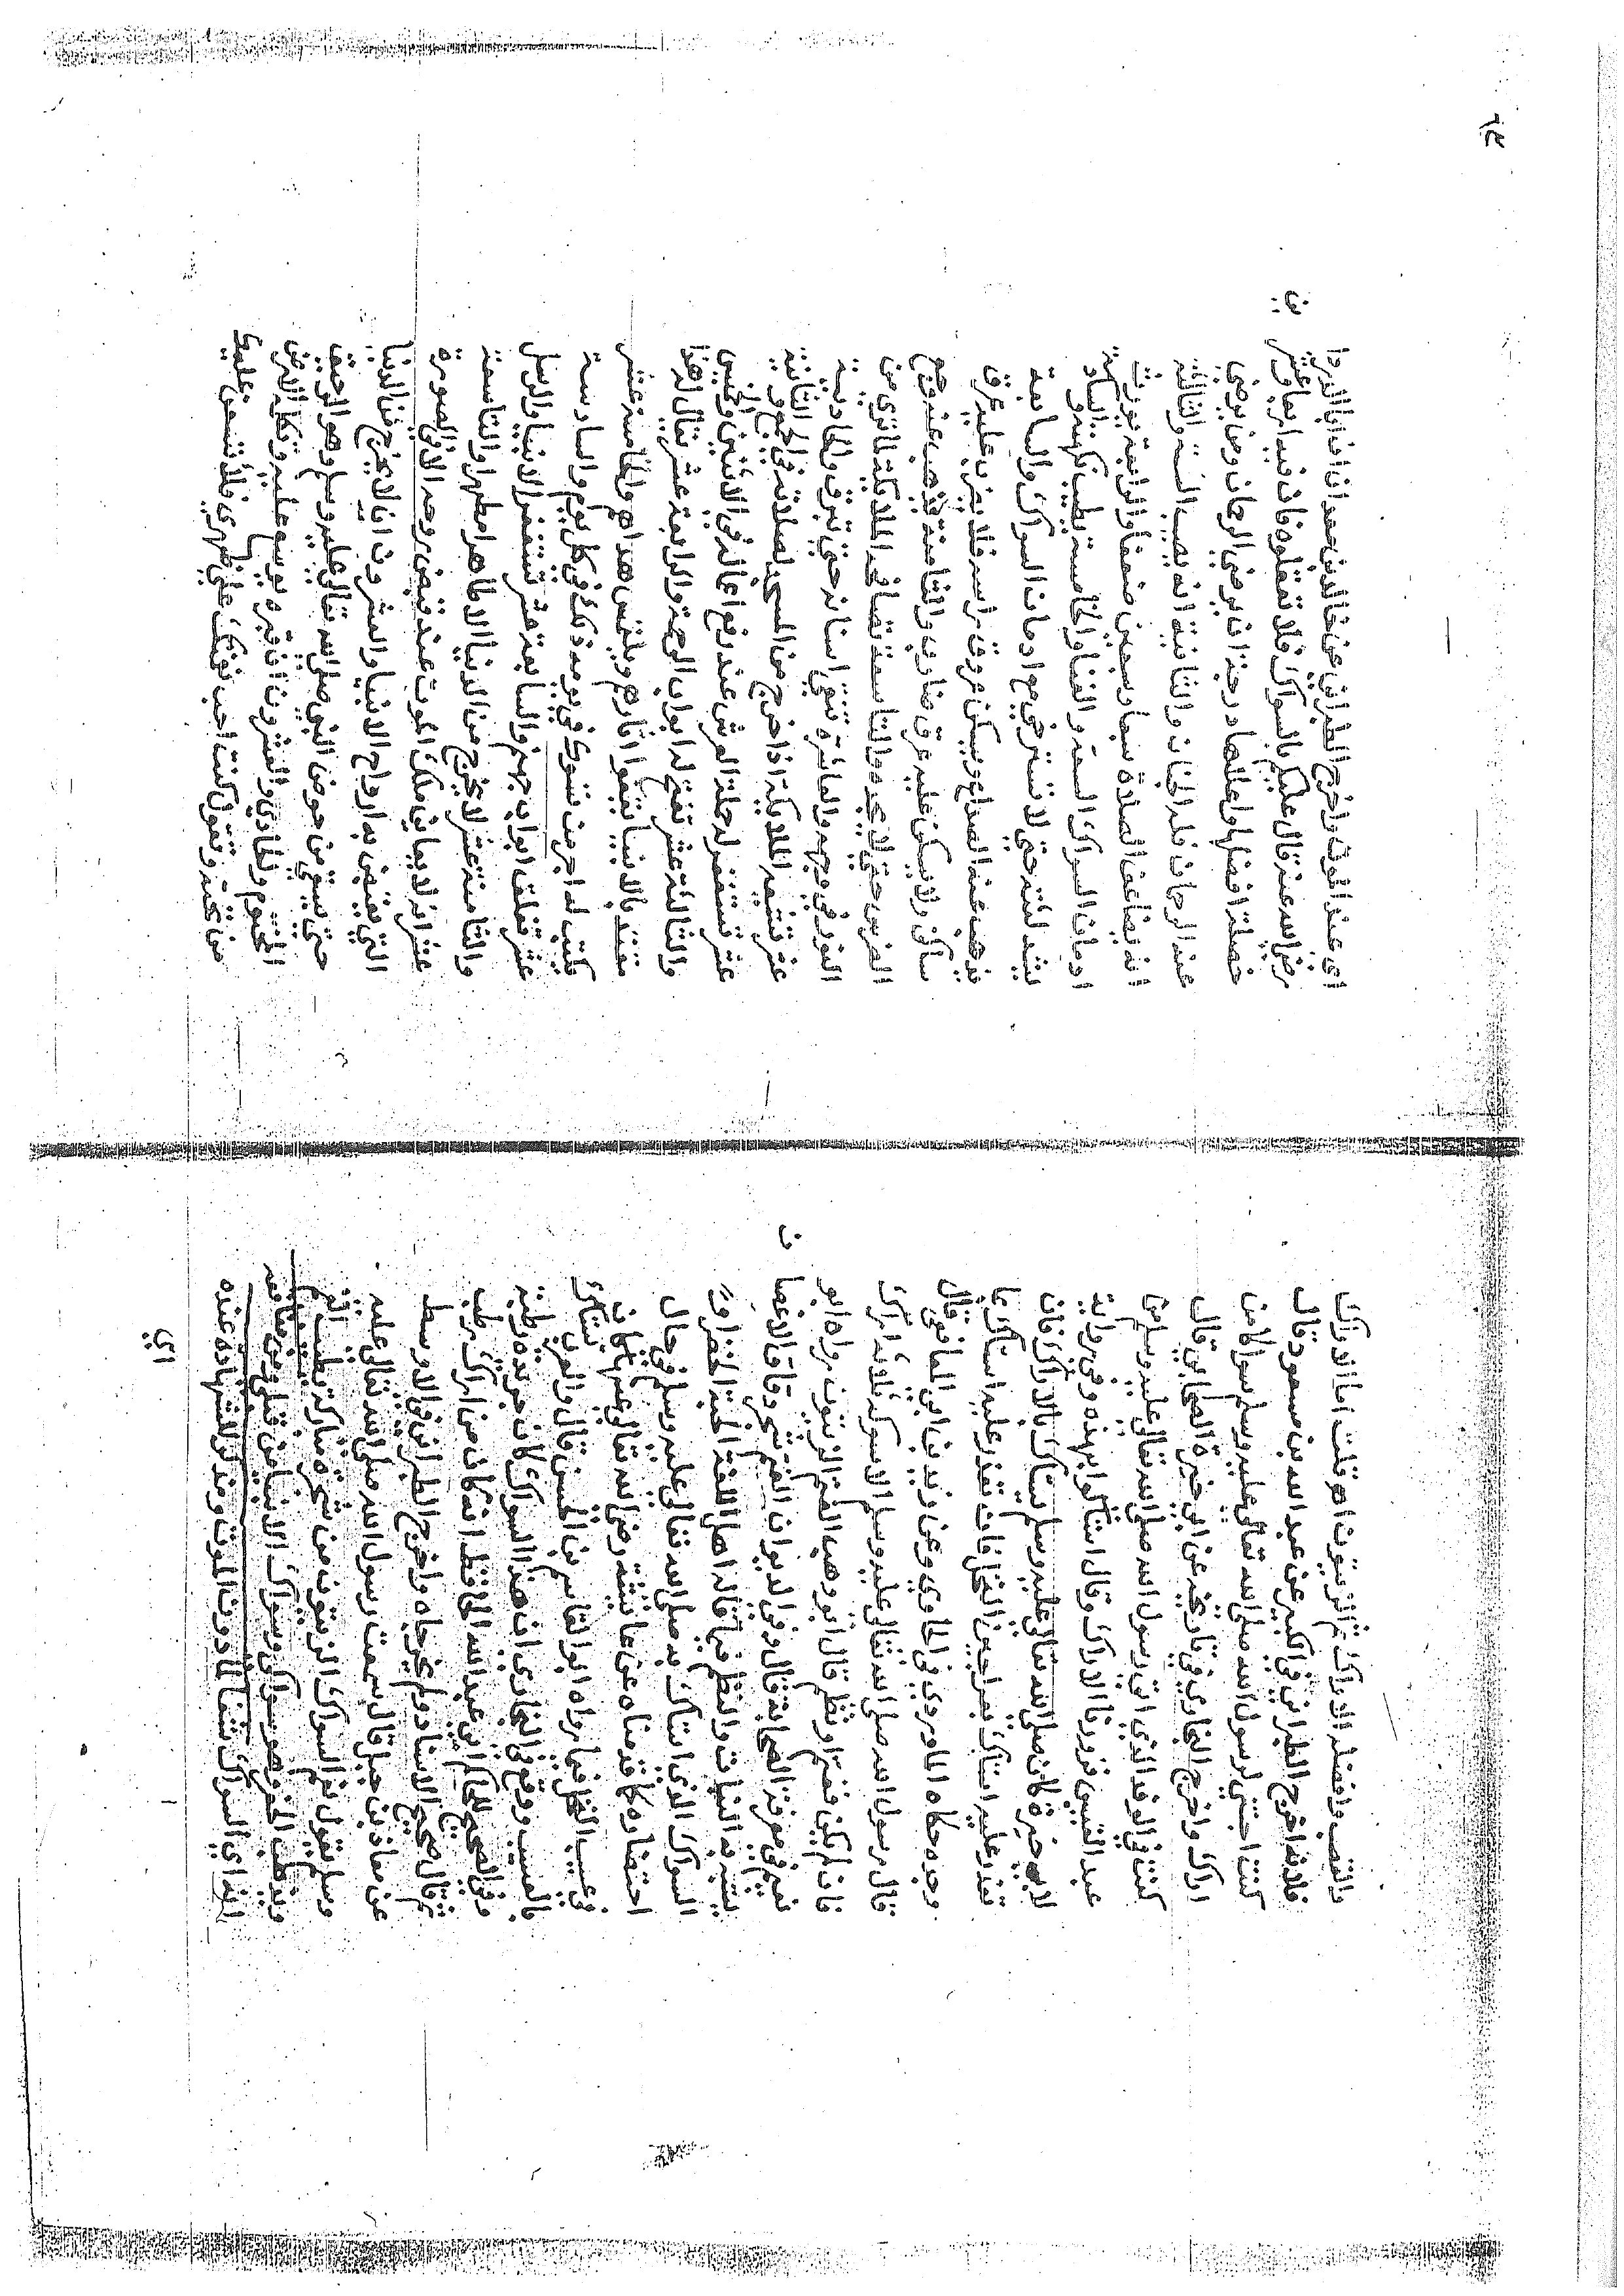 والقصب وافضله الاراك ثم الزيتون اهـ قلت اما الاراك
فلانه اخرج الطبراني في الكبير عن عبد الله بن مسعود قال
كنت اجتني لرسول الله صلى الله تعالى عليه وسلم سواكا من
اراك واخرج البخاري في تاريخه عن ابي خيرة الصباحي قال
كنت في الوفد الذي اتى رسول الله صلى الله تعالى عليه وسلم من
عبد القيس فزودنا الاراك وقال استاكوا بهذه وفي رواية
لابي خيرة كان صلى الله تعالى عليه وسلم يستاك بالاراك فان
تعذر عليه استاك بعراجين النخل فان تعذر عليه استاك بما
وجده حكاه الماوردي في الحاوي وعن زيد بن ابي قال
قال رسول الله صلى الله تعالى عليه وسلم الاسوكة ثلاثة اراك
فان لم يكن فعنم او بطم قال ابو وهب العنم الزيتون رواه ابو
نعيم في معرفة الصحابة قال وفي الديوان العنم شجر دقاق الاغصا
يشبه به البنان والبطم فيما قاله اهل اللغة الحبة الخضراء و
السواك الذي استاك به صلى الله تعالى عليه وسلم في حال
احتضاره كما قدمناه عن عايشة رضي الله تعالى عنها كان
من عسيب النخل فيما رواه ابو القاسم بن الحسن قال والعرب تستاك
بالعسيب ووقع في البخاري ان هذا السواك كان جريدة رطبة
وفي الصحيح للحاكم ابي عبد الله الحافظ انه كان من اراك رطب
ثم قال صحيح الاسناد ولم يخرجاه واخرج الطبراني في الاوسط
عن معاذ بن جبل قال سمعت رسول الله صلى الله تعالى عليه
وسلم يقول نعم السواك الزيتون من شجرة مباركة يطيب الفم
ويذهب الحفر وهو سواكي وسواك الانبيا من قبلي ومن منافعه
انه اي السواك شفا لما دون الموت ومذكر للشهادة عنده
اي
٦٤
اي عند الموت واخرج الطبراني عن خالد بن معدان عن ابي الدردا
رضي الله عنه قال عليكم بالسواك فلا تغفلوه فان فيه اربعا وعشرين
خصلة افضلها واعلاها درجة انه يرضي الرحمان ومن يرضي
عند الرحمان فله الجنان والثانية انه يصيب السنة والثالثة
انه يضاعف الصلاة سبعا وسبعين ضعفا والرابعة يورث
ادمان السواك السعة والغنا والخامسة يطيب نكهته والسادسة
يشد لثته حتى لا تسترخي مع ادمان السواك والسابعة
يذهب عنه الصداع ويسكن عروق راسه فلا يضرب عليه عرق
ساكن ولا يسكن عليه عرق ضارب والثامنة يذهب عنه وجع
الضرس حتى لا يجده والتاسعة تصافحه الملايكة لما ترى من
النور في وجهه والعاشرة تنقي اسنانه حتى تبرق والحادية
عشر تشيعه الملايكة اذا خرج من المسجد لصلاته في الجمع والثانية
عشر تستغفر له حملة العرش عند رفع اعماله في الاثنين والخميس
والثالثة عشر تفتح له ابواب الرحمة والرابعة عشر يقال له هذا
مقتد بالانبيا يقفوا اثارهم ويلتمس هداهم والخامسة عشر
يكتب له اجر من تسوك في يومه ذلك في كل يوم والسادسة
عشر تغلق ابواب جهنم والسابعة عشر تستغفر له الانبيا والرسل
والثامنة عشر لا يخرج من الدنيا الا طاهرا مطهرا والتاسعة
عشر انه لا يعاين ملك الموت عند قبض روحه الا في الصورة
التي يقبض بها ارواح الانبيا والعشرون ان لا يخرج من الدنيا
حتى يسقى من حوض النبي صلى الله تعالى عليه وسلم وهو الرحيق
المختوم والحادي والعشرون ان قبره يوسع عليه وتكلمه الارض
من تحته وتقول كنت احب نغمتك على ظهري فلاتسعن عليك